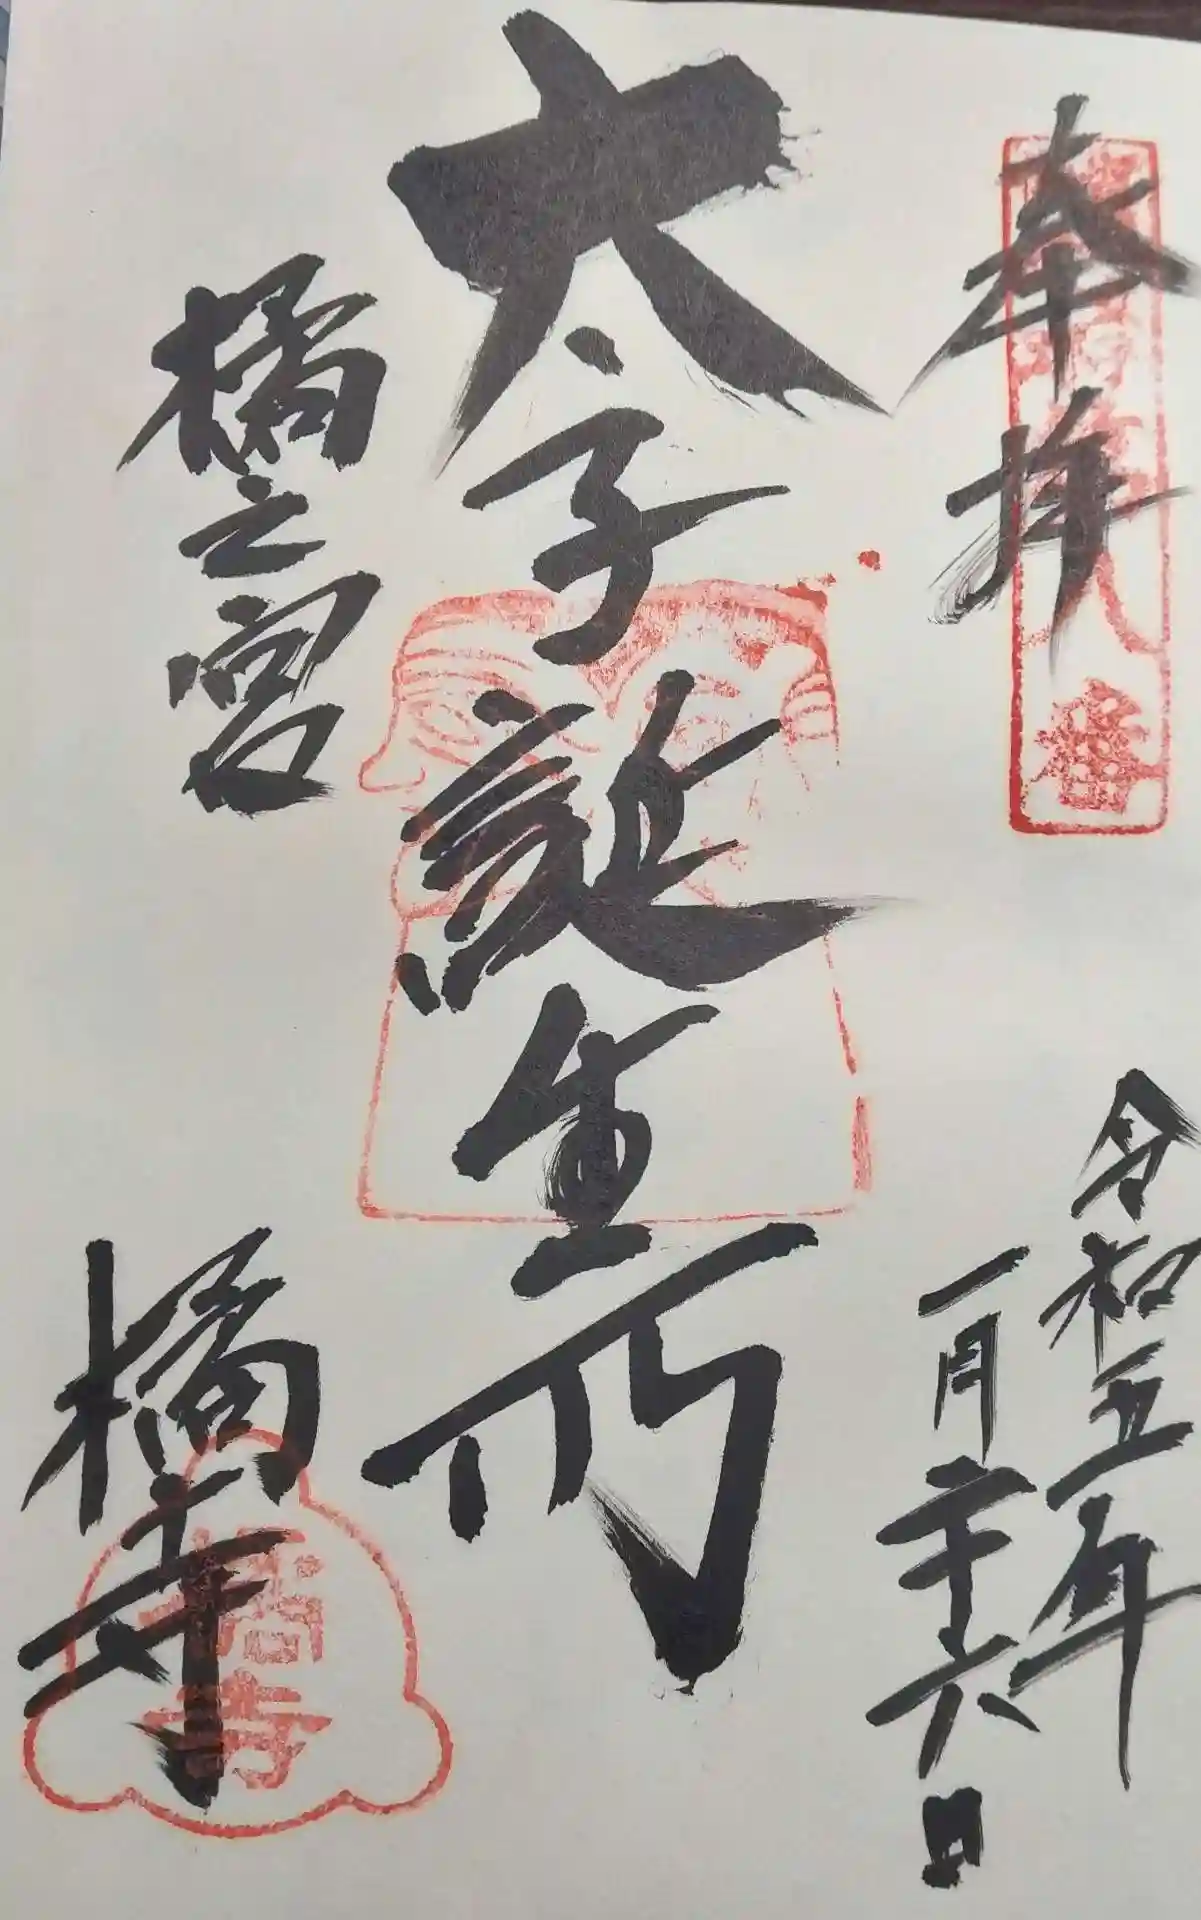 奉拝
令和五年
一月二十六日
太子誕生所
橘之宮
橘寺
橘寺